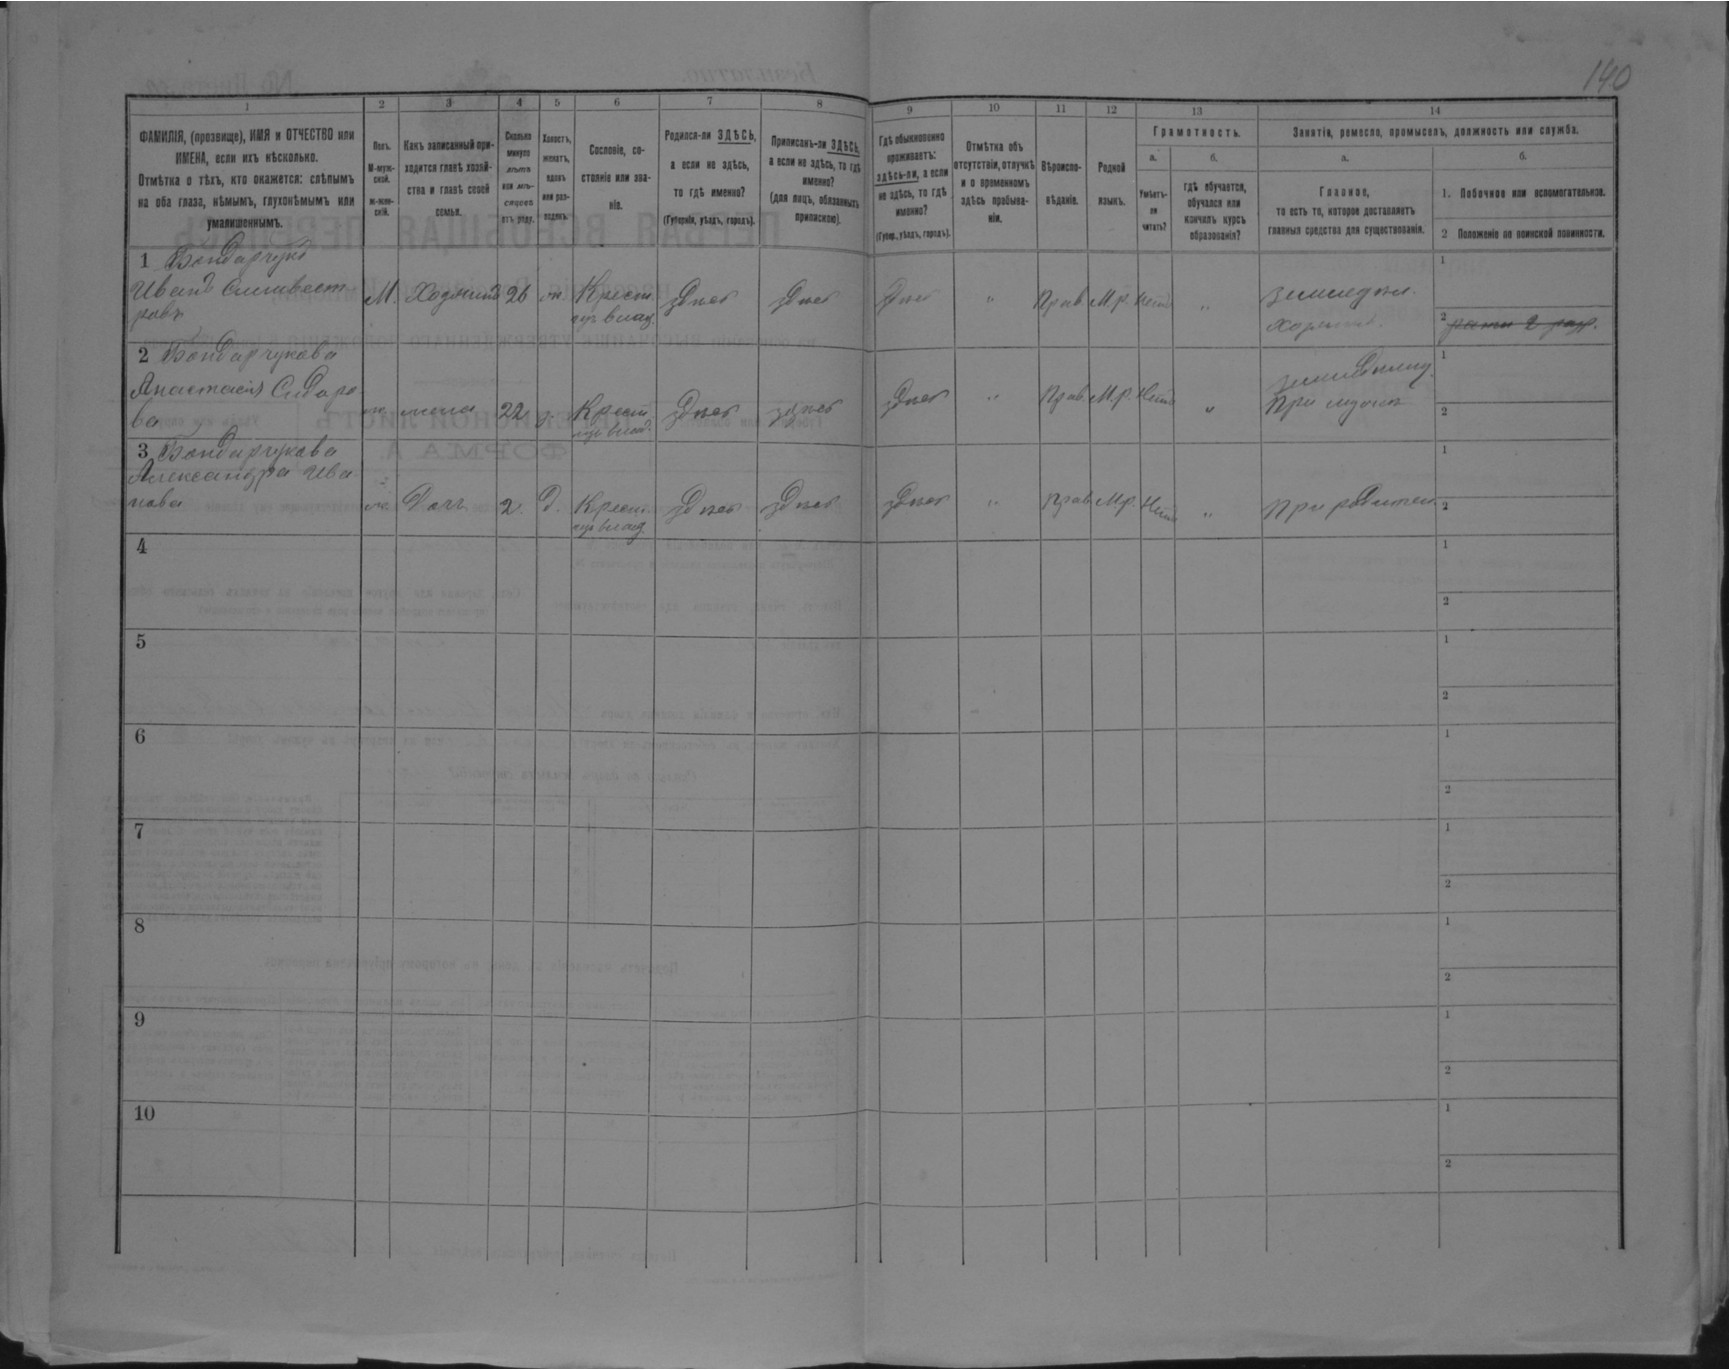 140
1 2 3 4 5 6 7 8 9 10 11 12 13 14
ФАМИЛІЯ, (прозвище), ИМЯ и ОТЧЕСТВО или
ИМЕНА, если ихъ нѣсколько.
Отмѣтка о тѣхъ, кто окажется: слѣпымъ
на оба глаза, нѣмымъ, глухонѣмымъ или
умалишеннымъ.
Полъ.
М-муж-
ской.
Ж-жен-
скій.
Какъ записанный при-
ходится главѣ хозяй-
ства и главѣ своей
семьи.
Сколько
минуло
лѣтъ
или мѣ-
сяцевъ
отъ роду.
Холостъ,
женатъ,
вдовъ
или раз-
веденъ.
Сословіе, со-
стояніе или зва-
ніе.
Родился-ли ЗДѢСЬ,
а если не здѣсь,
то гдѣ именно?
(Губернія, уѣздъ, городъ).
Приписанъ-ли ЗДѢСЬ,
а если не здѣсь, то гдѣ
именно?
(для лицъ, обязанныхъ
припискою).
Гдѣ обыкновенно
проживаетъ:
здѣсь-ли, а если
не здѣсь, то гдѣ
именно?
(Губер., уѣздъ, городъ).
Отмѣтка объ
отсутствіи, отлучкѣ
и о временномъ
здѣсь пребыва-
ніи.
Вѣроиспо-
вѣданіе.
Родной
языкъ.
Грамотность.
а.
Умѣетъ-
ли
читать?
б.
гдѣ обучается,
обучался или
кончилъ курсъ
образованія?
Занятіе, ремесло, промыселъ, должность или служба.
а.
Главное,
то есть то, которое доставляетъ
главныя средства для существованія.
б.
1. Побочное или вспомогательное.
2 Положеніе по воинской повинности.
1 Бондарчукъ
Иванъ Сильвест
ровъ
М. 26 ж Крест. здѣсь здѣсь здѣсь " Прав. Мр. Нѣтъ "
изъ влад.
1
2
2 Бондарчукова
Анастасія Сидоро
ва
ж жена 22 Крест. здѣсь здѣсь здѣсь " Прав. Мр. Нѣтъ "
изъ влад.
При мужѣ
1
2
3 Бондарчукова
Александра Ива
нова
ж Дочь 2. д. Крест. здѣсь здѣсь здѣсь " Прав. Мр. Нѣтъ " При родител.
изъ влад.
1
2
4 1
2
5 1
2
6 1
2
7 1
2
8 1
2
9 1
2
10 1
2